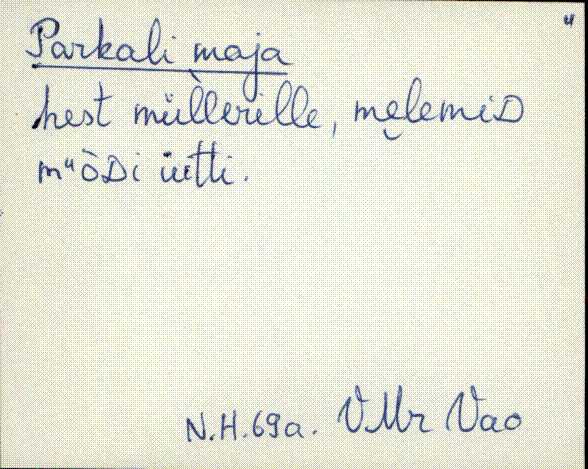 4
Parkali maja
hest müllerelle, me̮lemiD
mᵘòDi üt́ti.
N.H.69a. VMr Vao